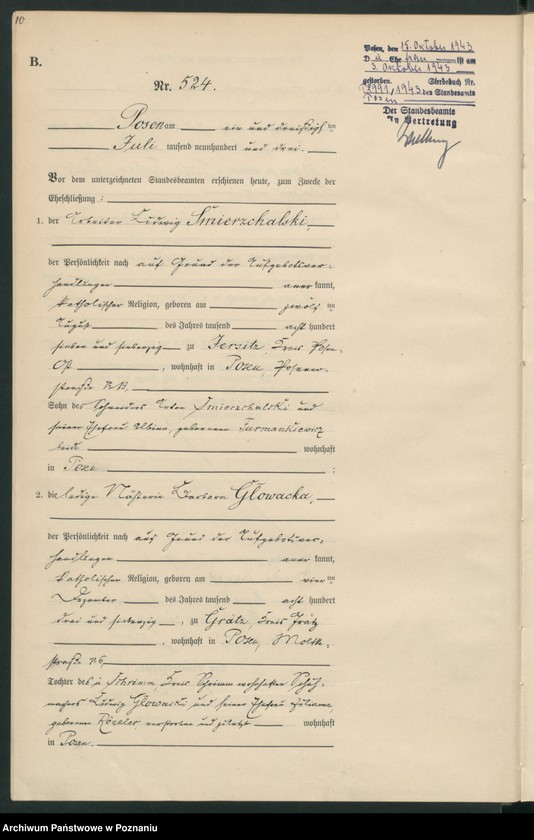 10
B.
Nr. 524.
Posen am ein und dreißigsten
Juli tausend neunhundert und drei.
Posen, den 15. Oktober 1943
D ie Ehefrau ist am
3. Oktober 1943
gestorben. Sterbebuch Nr.
1943 des Standesamts
Posen
Der Standesbeamte
In Vertretung
Vor dem unterzeichneten Standesbeamten erschienen heute, zum Zwecke der
Eheschließung:
1. der Arbeiter Ludwig Smierzchalski,
der Persönlichkeit nach auf Grund der Aufgebotsver-
handlungen aner kannt,
katholischer Religion, geboren am zwölften
August des Jahres tausend acht hundert
sieben und siebenzig zu Jersitz, Kreis Posen-
Ost, wohnhaft in Posen, Posener-
straße
Sohn des Schneiders Anton Smierzchalski und
seiner Ehefrau Albina, geborenen Furmankiewicz
beide wohnhaft
in Posen;
2. die ledige Näherin Barbara Głowacka,
der Persönlichkeit nach auf Grund der Aufgebotsver-
handlungen aner kannt,
katholischer Religion, geboren am vierten
Dezember des Jahres tausend acht hundert
drei und siebenzig, zu Grätz, Kreis Grätz
, wohnhaft in Posen, Moltke-
straße No 6,
Tochter des in Schrimm, Kreis Schrimm verstorbenen Schuh-
machers Ludwig Głowacki und seiner Ehefrau Juliana,
geborenen verstorben und zuletzt wohnhaft
in Posen.
Archiwum Państwowe w Poznaniu